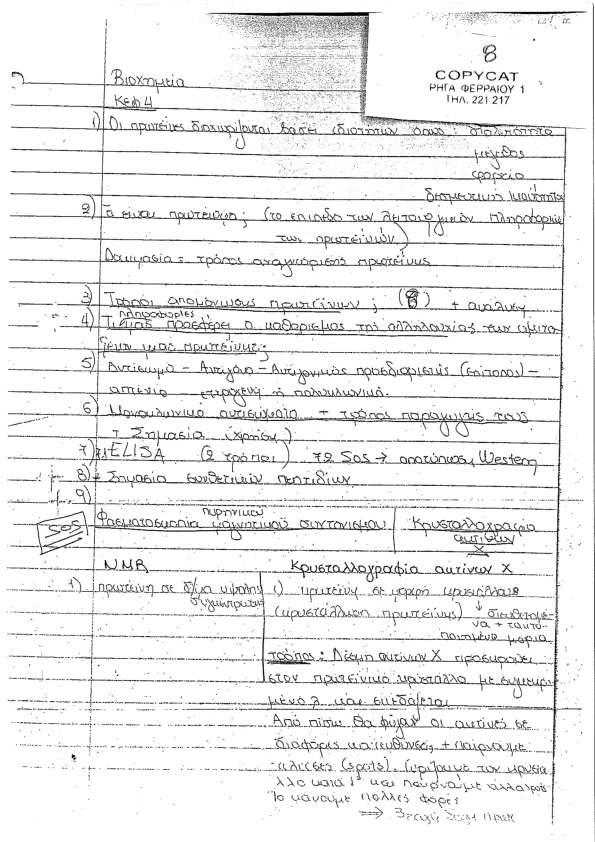 8
COPYCAT
ΡΗΓΑ ΦΕΡΡΑΙΟΥ 1
ΤΗΛ. 221 217
Βιοχημεία
Κεφ 4
1) Οι πρωτεΐνες διαχωρίζονται βάσει ιδιοτήτων όπως: διαλυτότητα
μέγεθος
φορτίο
δεσμευτική ικανότητα
2) Τι είναι πρωτέωμα; (το επίπεδο των λειτουργικών πληροφοριών
των πρωτεϊνών)
Δοκιμασία = τρόπος αναγνώρισης πρωτεΐνης
3) Τρόποι απομόνωσης πρωτεϊνών; (8) + ανάλυση
4) Τι πληροφορίες μας προσφέρει ο καθορισμός της αλληλουχίας των αμινο
ξέων μιας πρωτεΐνης;
5) Αντίσωμα - Αντιγόνο - Αντιγονικός προσδιοριστής (επίτοπος) -
απτένιο - ετερογενή ή πολυκλωνικό.
6) Μονοκλωνικά αντισώματα + τρόπος παραγωγής τους
+ Σημασία (χρήση)
7) 7.1 ELISA (2 τρόποι) 7.2 Sos → αποτύπωση Western
8) Σημασία συνθετικών πεπτιδίων
9)
SOS
Φασματοσκοπία πυρηνικού μαγνητικού συντονισμού
Κρυσταλλογραφία
ακτίνων
Χ
NMR
Κρυσταλλογραφία ακτίνων Χ
1) πρωτεΐνη σε δ/μα υψηλής
συγκέντρωσης
1) πρωτεΐνη σε μορφή κρυστάλλου
(κρυστάλλωση πρωτεΐνης) ↓ διευθετημέ
να + ταυτο
ποιημένα μόρια
τρόπος: Δέσμη ακτίνων Χ προσκρούει
στον πρωτεϊνικό κρύσταλλο με συγκεκρι
μένο λ και σκεδάζεται
Από πίσω θα φύγουν οι ακτίνες σε
διάφορες κατευθύνσεις + παίρνουμε
κηλίδες (spots). Γυρίζουμε τον κρύστα
λλο κατά 1° και παίρνουμε άλλα spots
Το κάνουμε πολλές φορές
⇒